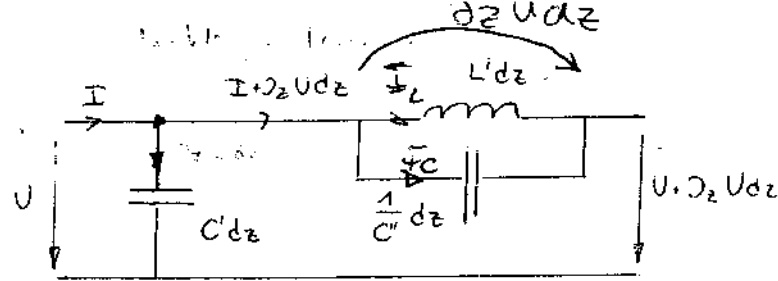 ∂z U dz
I
I+∂z U dz
I_L
L'dz
U
C'dz
I_C
1/C'' dz
U+∂z U dz